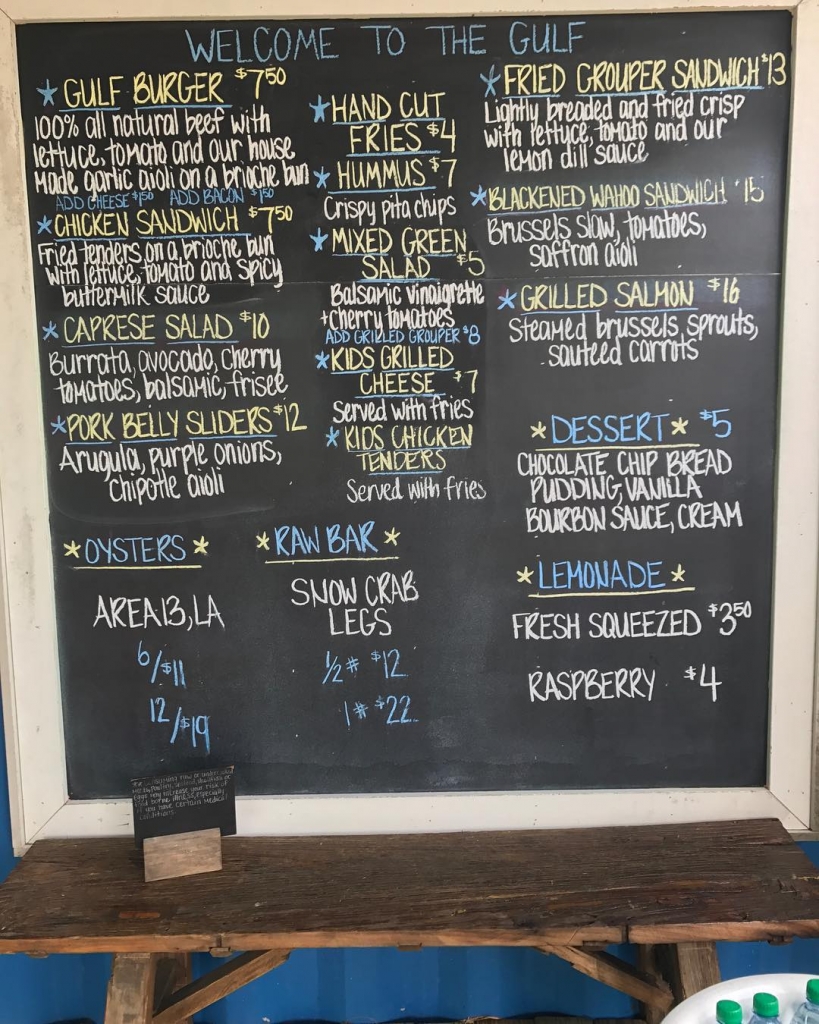 WELCOME TO THE GULF
GULF BURGER $7.50
100% all natural beef with
lettuce, tomato and our house
made garlic aioli on a brioche bun
ADD CHEESE $1.50 ADD BACON $1.50
CHICKEN SANDWICH $7.50
Fried tenders on a brioche bun
with lettuce, tomato and spicy
buttermilk sauce
CAPRESE SALAD $10
Burrata, avocado, cherry
tomatoes, balsamic, frisee
PORK BELLY SLIDERS $12
Arugula, purple onions,
chipotle aioli
HAND CUT
FRIES $4
HUMMUS $7
Crispy pita chips
MIXED GREEN
SALAD $5
Balsamic vinaigrette
+cherry tomatoes
ADD GRILLED GROUPER $8
KIDS GRILLED
CHEESE $7
Served with fries
KIDS CHICKEN
TENDERS
Served with fries
FRIED GROUPER SANDWICH $13
Lightly breaded and fried crisp
with lettuce, tomato and our
lemon dill sauce
BLACKENED WAHOO SANDWICH $15
Brussels slaw, tomatoes,
saffron aioli
GRILLED SALMON $16
Steamed brussels, sprouts,
sauteed carrots
DESSERT $5
CHOCOLATE CHIP BREAD
PUDDING, VANILLA
BOURBON SAUCE, CREAM
OYSTERS
AREA 13, LA
6/$11
12/$19
RAW BAR
SNOW CRAB
LEGS
1/2# $12
1# $22
LEMONADE
FRESH SQUEEZED $3.50
RASPBERRY $4
eggs may increase your risk of
food borne illness, especially
if you have certain medical
conditions